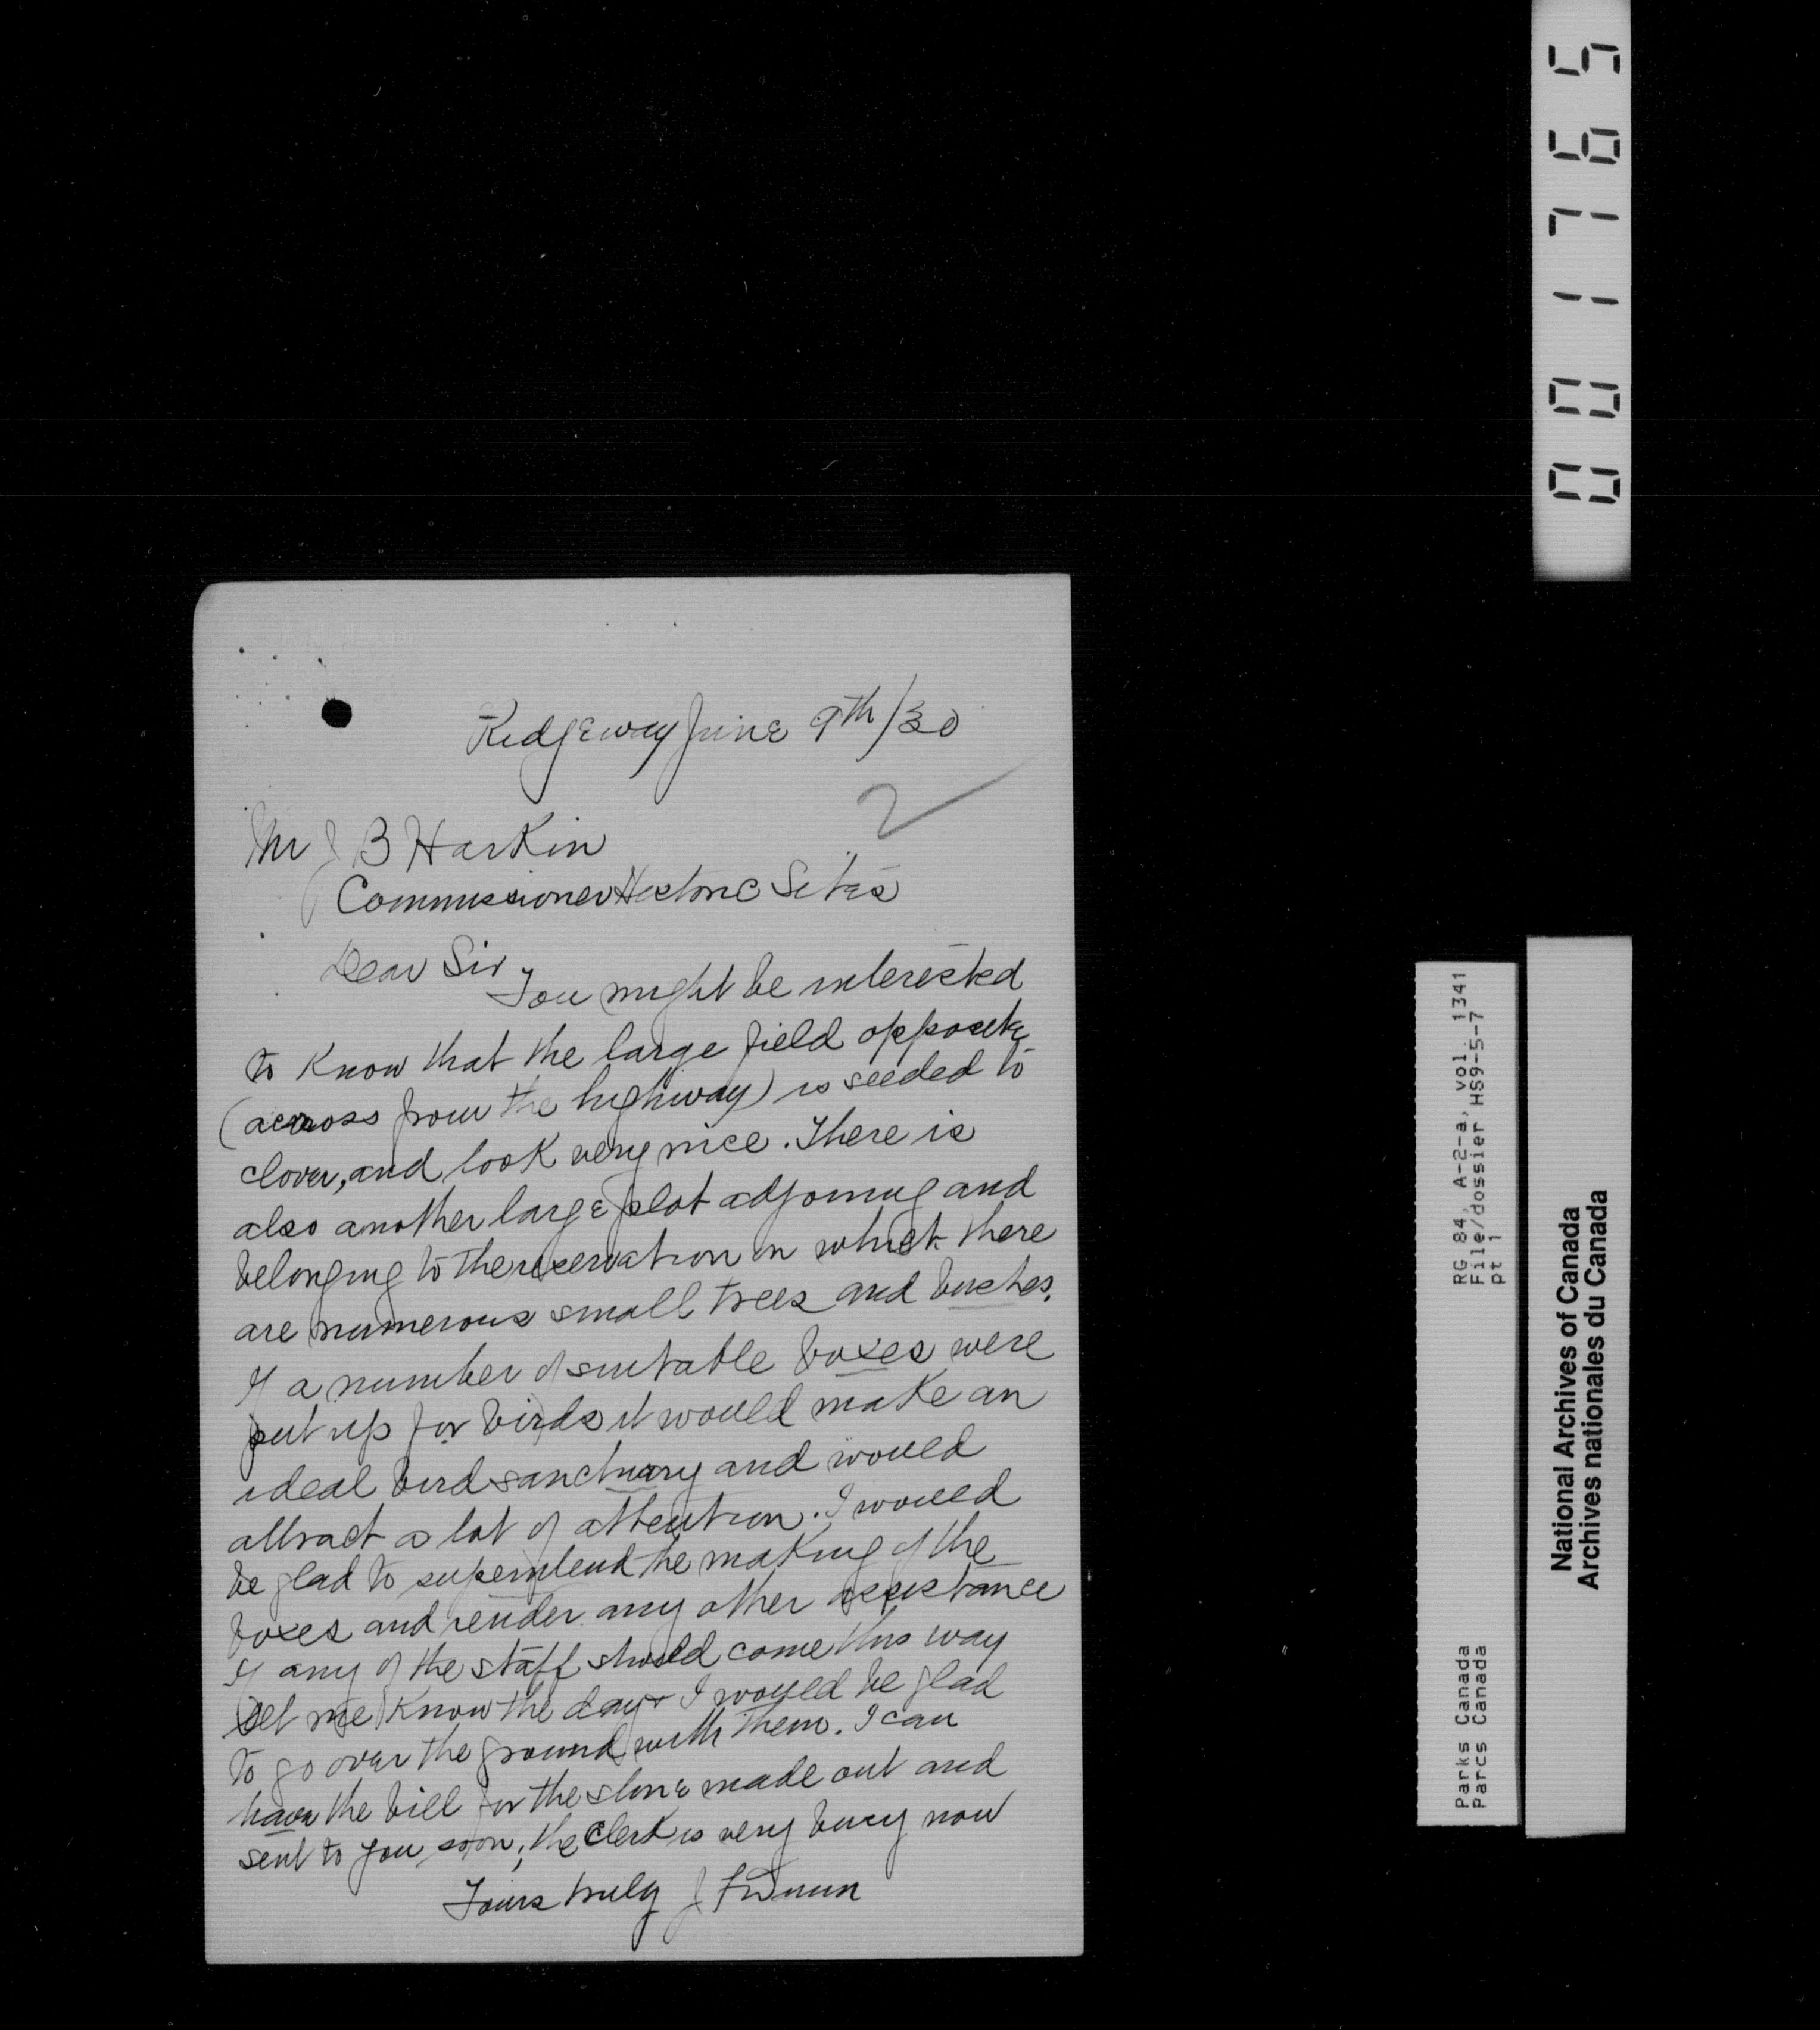 Ridgeway June 9th/30
2
Mr J B Harkin
Commissioner Historic Sites
Dear Sir,
You might be interested
to know that the large field opposite
(across from the highway) is seeded to
clover, and look very nice. There is
also another large plot adjoining and
belonging to the reservation on which there
are numerous small trees and bushes.
If a number of suitable boxes were
put up for birds it would make an
ideal bird sanctuary and would
attract a lot of attention. I would
be glad to superintend the making of the
boxes and render any other assistance
If any of the staff should come this way
let me know the day & I would be glad
to go over the ground with them. I can
have the bill for the stone made out and
sent to you soon, the clerk is very busy now
Yours truly J F Dunn
001765
RG 84, A-2-a, vol. 1341
File/dossier HS9-5-7
pt 1
Parks Canada
Parcs Canada
National Archives of Canada
Archives nationales du Canada